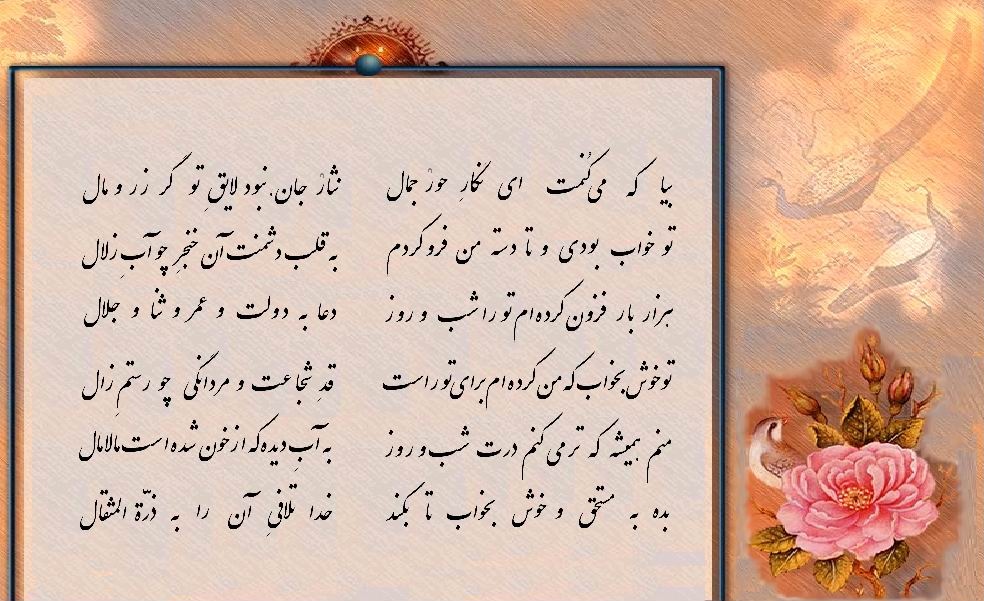 بیا که می‌کُنمت ای نگارِ حورْ جمال نثارْ جان، نبود لایقِ تو گر زر و مال
تو خواب بودی و تا دسته من فرو کردم به قلب دشمنت آن خنجرِ چو آبِ زلال
هزار بار فزون کرده‌ام تو را شب و روز دعا به دولت و عمر و ثنا و جلال
تو خوش بخواب که من کرده‌ام برای تو راست قدِ شجاعت و مردانگی چو رستمِ زال
منم همیشه که تر می‌کنم درت شب و روز به آبِ دیده که از خون شده است مالامال
بده به مستحق و خوش بخواب تا بکند خدا تلافیِ آن را به ذرّة المثقال